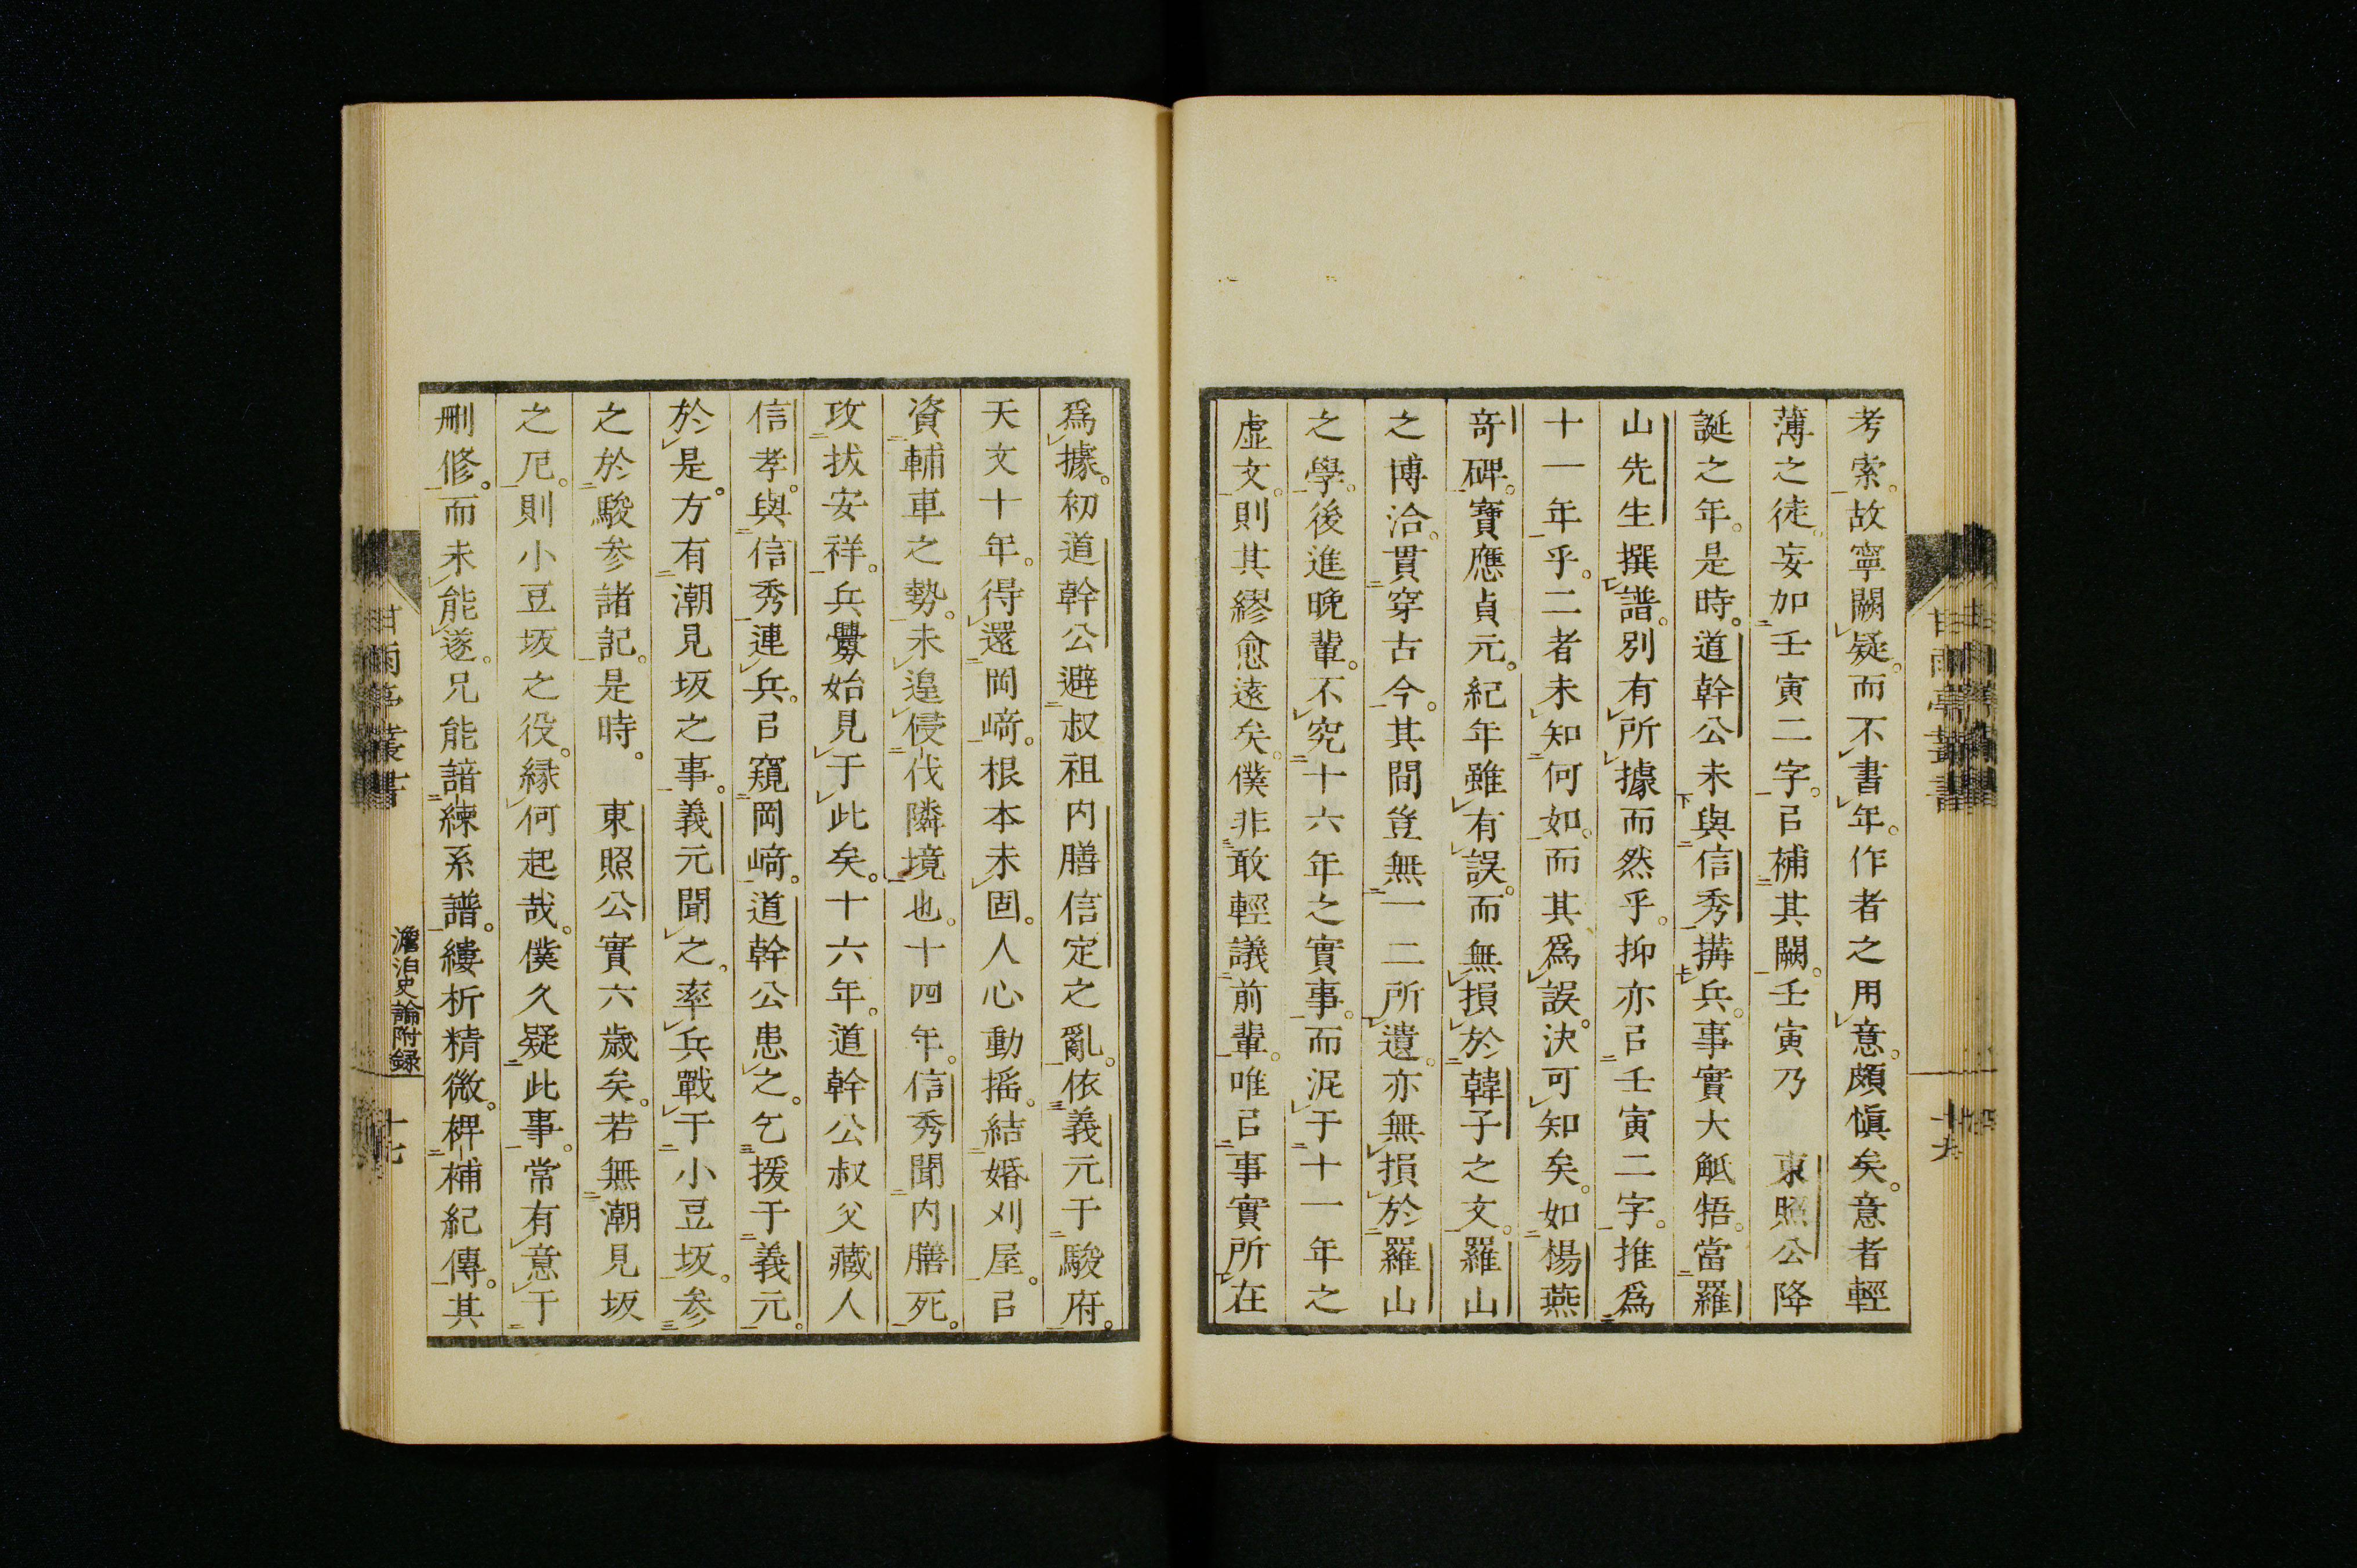 考索。故寧闕疑。而不書年。作者之用意。頗愼矣。意者輕
薄之徒。妄加壬寅二字。㠯補其闕。壬寅乃　東照公降
誕之年。是時。道幹公未與信秀搆兵。事實大觝牾。當羅
山先生撰譜。別有所據而然乎。抑亦㠯壬寅二字。推爲
十一年乎。二者未知何如。而其爲誤。決可知矣。如楊燕
奇碑。寶應貞元。紀年雖有誤。而無損於韓子之文。羅山
之博洽。貫穿古今。其間豈無一二所遺。亦無損於羅山
之學。後進晩輩。不究十六年之實事。而泥于十一年之
虛文。則其繆愈遠矣。僕非敢輕議前輩。唯㠯事實所在
爲據。初道幹公避叔祖内膳信定之亂。依義元于駿府。
天文十年。得還岡﨑。根本未固。人心動搖。結婚刈屋。㠯
資輔車之勢。未遑侵伐隣境也。十四年。信秀聞内膳死。
攻拔安祥。兵釁始見于此矣。十六年。道幹公叔父藏人
信孝。與信秀連兵。㠯窺岡﨑。道幹公患之。乞援于義元。
於是。方有潮見坂之事。義元聞之。率兵戰于小豆坂。参
之於駿参諸記。是時。　東照公實六歳矣。若無潮見坂
之厄。則小豆坂之役。縁何起哉。僕久疑此事。常有意于
刪修。而未能遂。兄能諳練系譜。縷析精微。裨補紀傳。其
甘雨亭叢書
澹泊史論附録
十七